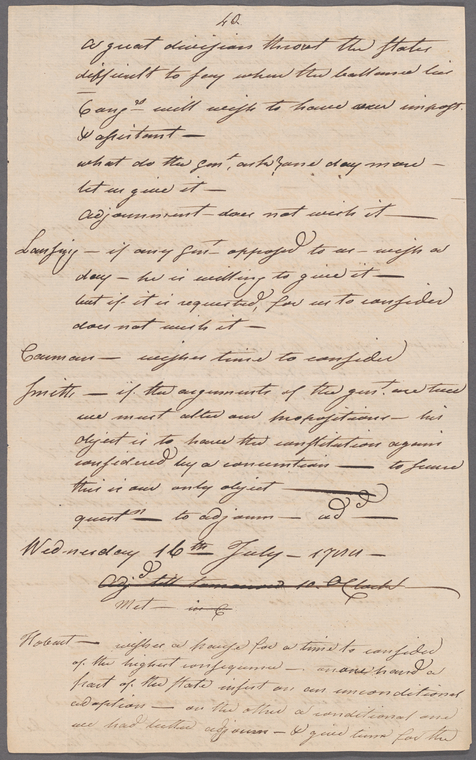 40.
a great division throot the States
difficult to say where the ballance lies
Congss will wish to have our impost
& assistant —
what do the Gent. ask? one day more —
let us give it —
adjournment — does not wish it —
Lansing — if any Gent opposed to us — wish a
day — he is willing to give it —
but if it is requested, for us to consider
does not wish it —
wishes time to consider
Smith — if the arguments of the gent. are true
we must alter our propositions — his
object is to have the constitution again
considered by a convention — to secure
this is our only object —
questn — to adjourn — ad d —
Wednesday 16th July — 1788 —
Adjd till tomorrow 10. OClock
Met — in C
Hobart — wishes a pause for a time to consider
of the highest consequence — on one hand a
part of the State insist on an unconditional
adoption — on the other a conditional one
we had better adjourn — & give time for the